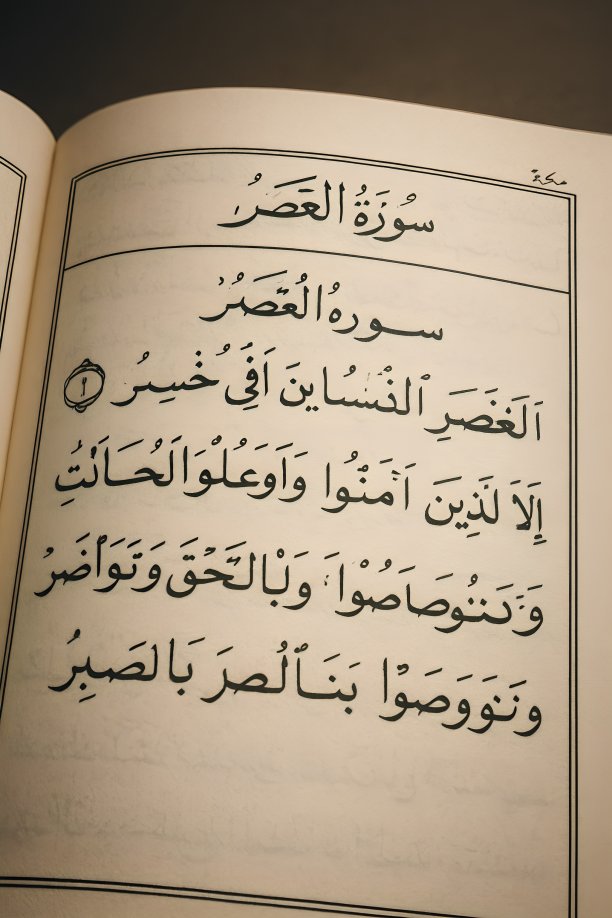 مكة
سُورَةُ العَصَرُ
سورهُ العُصَرُ
اَلَغَصَرِ النُسُاينَ اَفِى خُسِرُ ١
إِلَاَ لَذِينَ اَمَنُوا وَاَوَعُلُوَالَحُاَنتِ
وَتَنُوصَاصُوْا وَلْبَالَحَقَ وَتَوَاضَرُ
وتَوَوَصَوْا بَنَالُصرَ بَالصَبِرُ